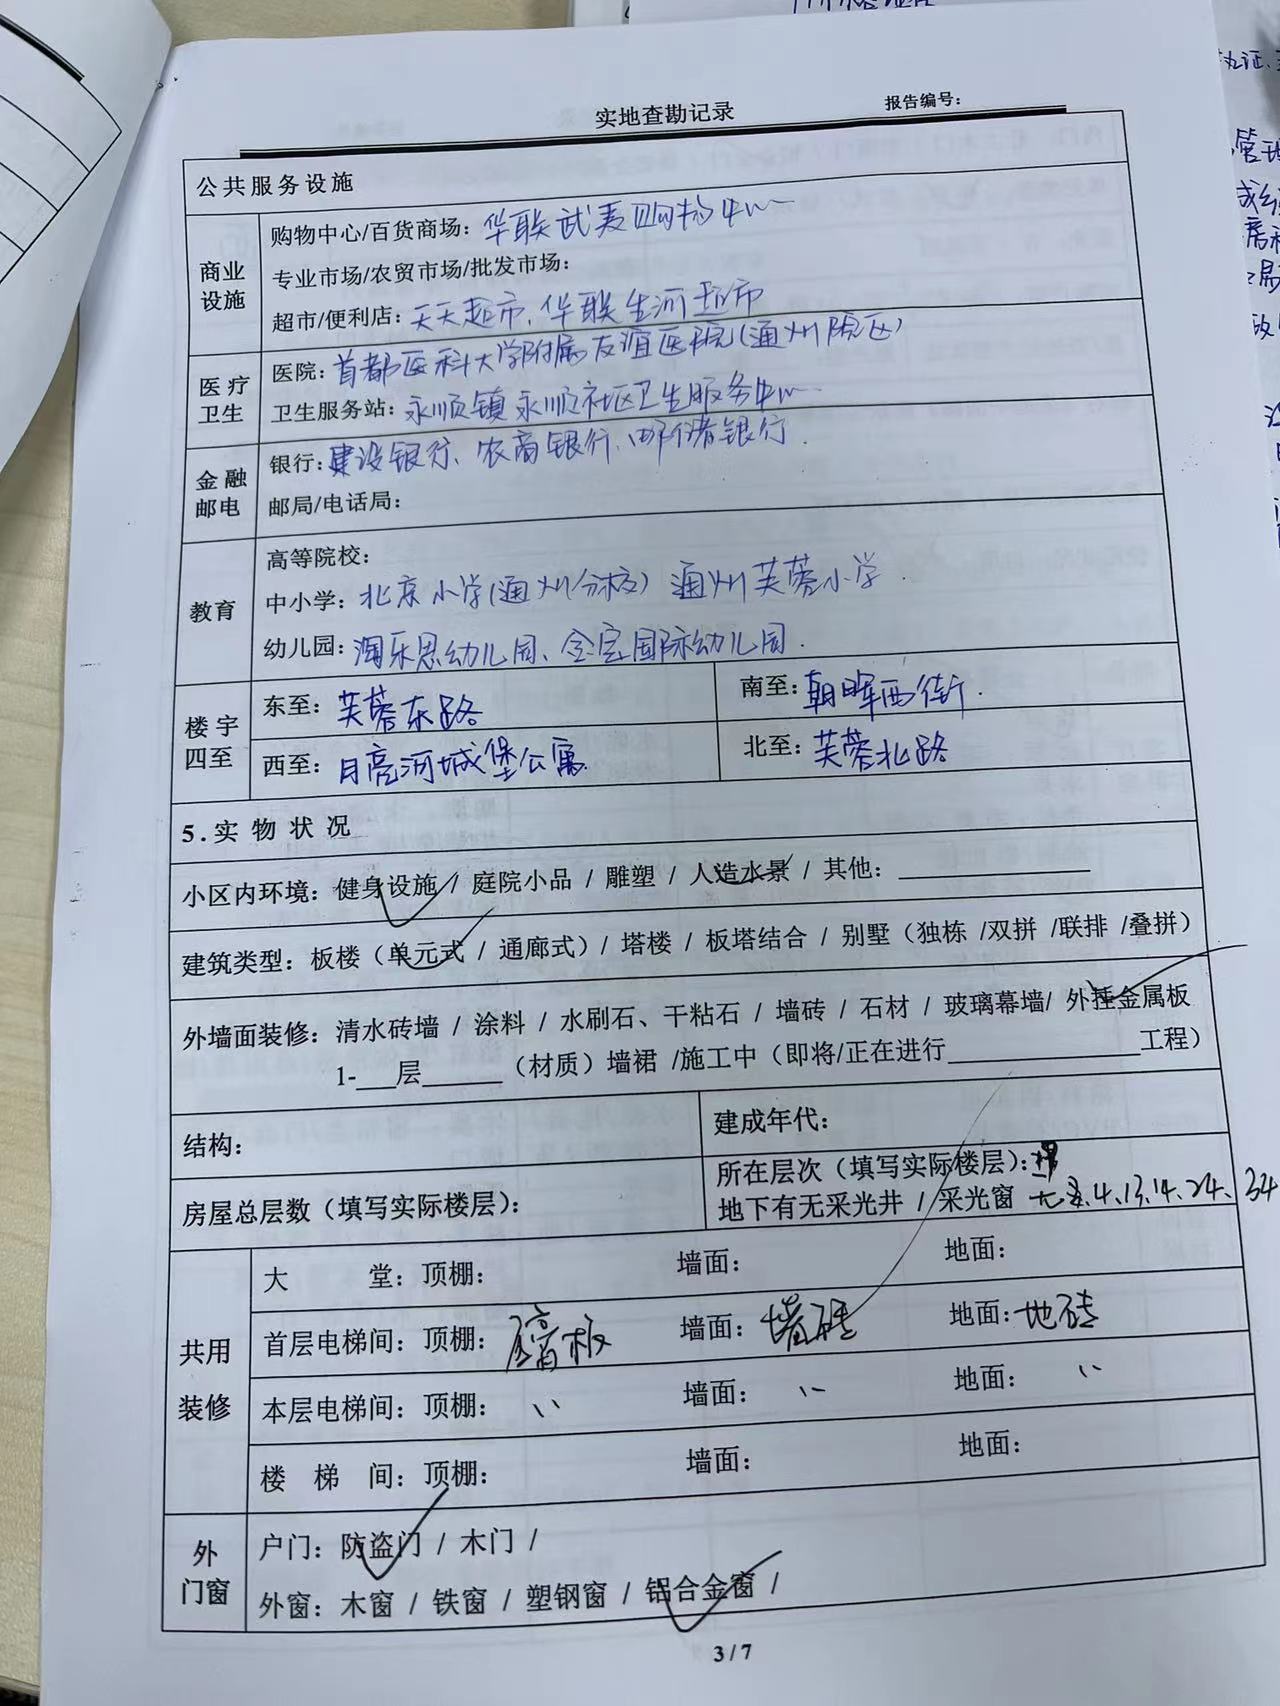 实地查勘记录
报告编号：
公共服务设施
商业设施
购物中心/百货商场：华联武夷购物中心
专业市场/农贸市场/批发市场：
超市/便利店：天天超市、华联生活超市
医疗卫生
医院：首都医科大学附属友谊医院(通州院区)
卫生服务站：永顺镇永顺社区卫生服务中心
金融邮电
银行：建设银行、农商银行、邮储银行.
邮局/电话局：
教育
高等院校：
中小学：北京小学(通州分校) 通州芙蓉小学.
幼儿园：淘乐思幼儿园、金宝国际幼儿园.
楼宇四至
东至：芙蓉东路
南至：朝晖西街.
西至：月亮河城堡公寓
北至：芙蓉北路
5.实物状况
小区内环境：健身设施 / 庭院小品 / 雕塑 / 人造水景 / 其他：
建筑类型：板楼（单元式 / 通廊式）/ 塔楼 / 板塔结合 / 别墅（独栋 /双拼 /联排 /叠拼）
外墙面装修：清水砖墙 / 涂料 / 水刷石、干粘石 / 墙砖 / 石材 / 玻璃幕墙/ 外挂金属板
1-___层______（材质）墙裙 /施工中（即将/正在进行______________工程）
结构：
建成年代：
房屋总层数（填写实际楼层）：
所在层次（填写实际楼层）：
地下有无采光井 / 采光窗 4、13、14、24、34
共用装修
大堂：顶棚： 墙面： 地面：
首层电梯间：顶棚： 墙面：墙砖 地面：地砖
本层电梯间：顶棚：〃 墙面：〃 地面：〃
楼梯间：顶棚： 墙面： 地面：
外门窗
户门：防盗门 / 木门 /
外窗：木窗 / 铁窗 / 塑钢窗 / 铝合金窗 /
3 / 7